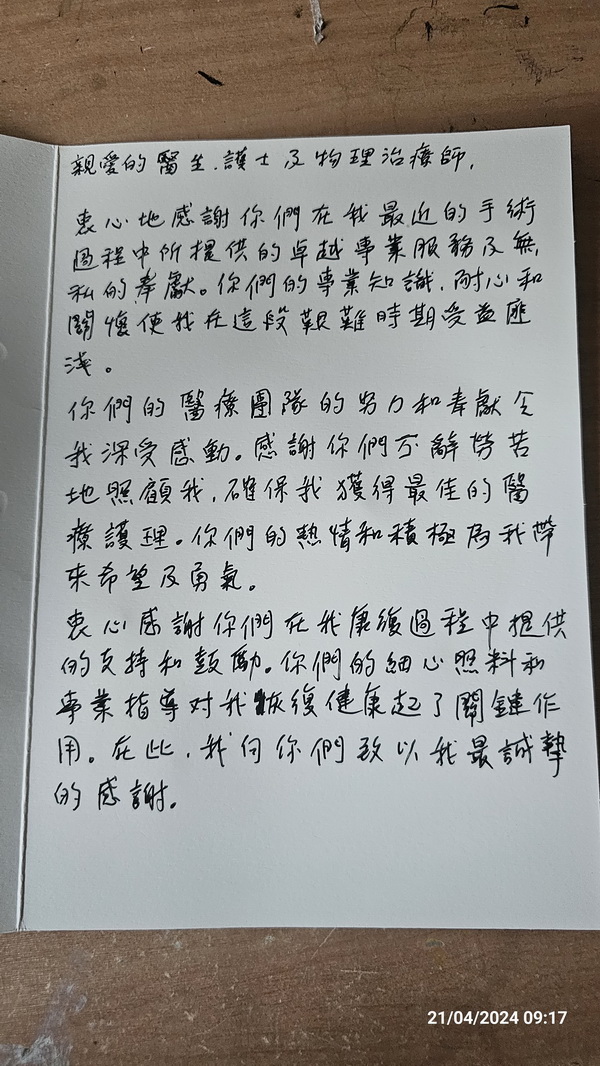 親愛的醫生、護士及物理治療師，
衷心地感謝你們在我最近的手術
過程中所提供的卓越專業服務及無
私的奉獻。你們的專業知識、耐心和
關懷使我在這段艱難時期受益匪
淺。
你們的醫療團隊的努力和奉獻令
我深受感動。感謝你們不辭勞苦
地照顧我，確保我獲得最佳的醫
療護理。你們的熱情和積極為我帶
來希望及勇氣。
衷心感謝你們在我康復過程中提供
的支持和鼓勵。你們的細心照料和
專業指導對我恢復健康起了關鍵作
用。在此，我向你們致以我最誠摯
的感謝。
21/04/2024 09:17